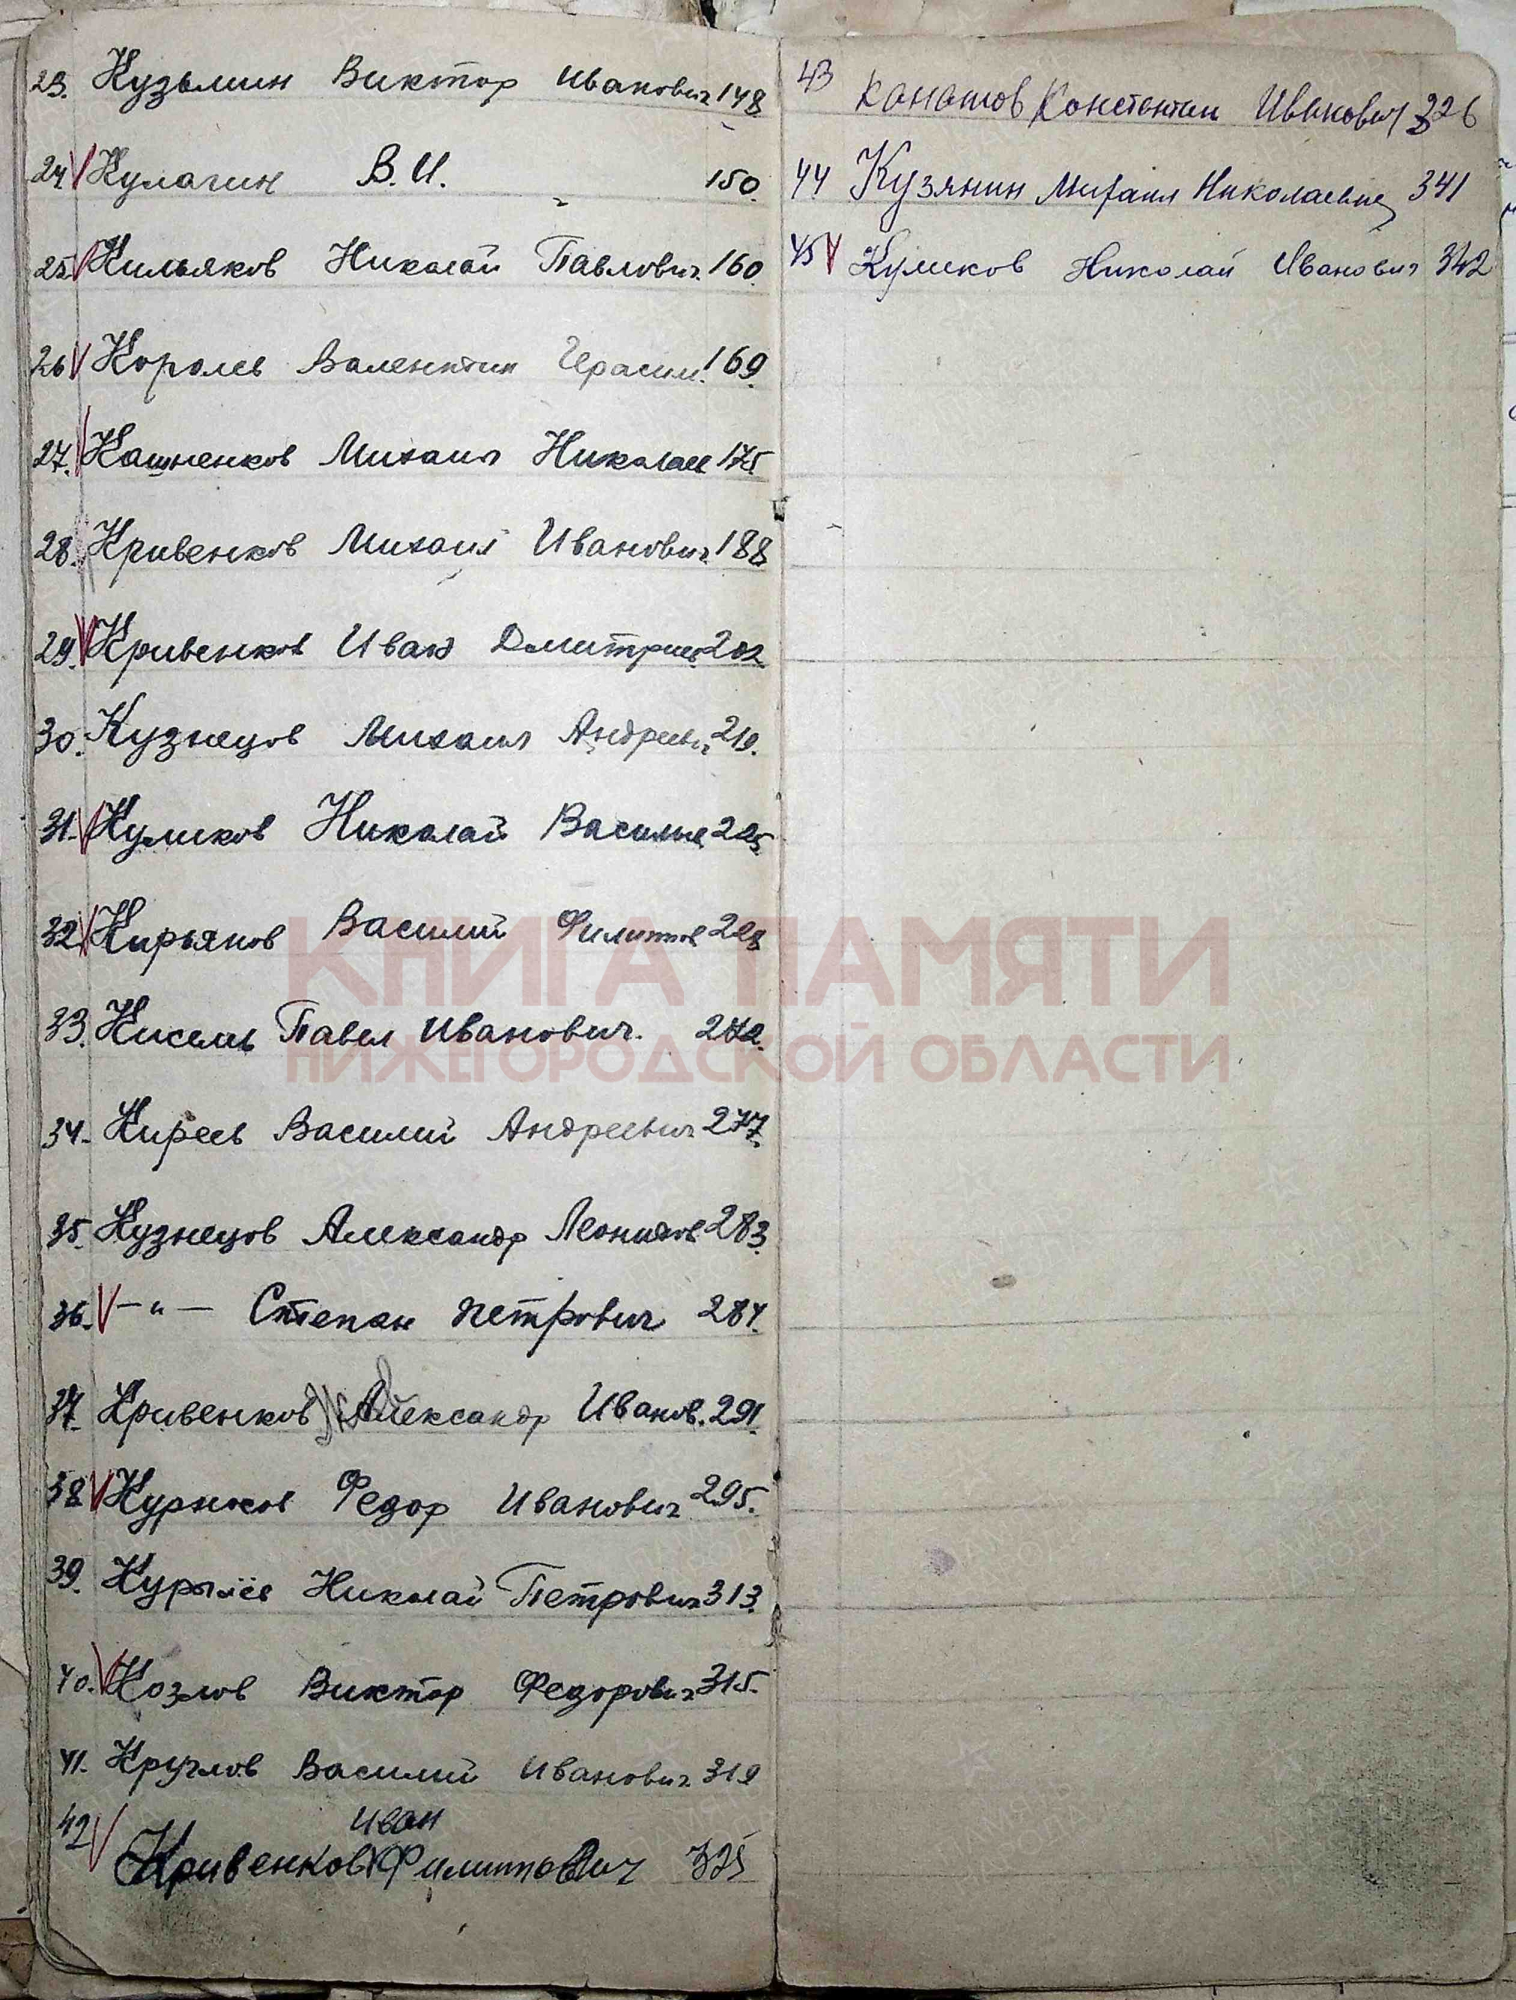 23. Кузьмин Виктор Иванович 148
24. V Кулагин В.И. 150.
25. V Кильяков Николай Павлович 160.
26 V Королев Валентин Герасим. 169.
27. V Кашненков Михаил Николаев 175.
28. Кривенков Михаил Иванович 188
29. V Кривенков Иван Дмитриев 202
30. Кузнецов Михаил Андреевич 219.
31. V Куликов Николай Василье 225.
32. V Кирьянов Василий Филиппов 228
33. Кисель Павел Иванович. 272.
34. Киреев Василий Андреевич 277.
35. Кузнецов Александр Леонидов 283.
36. V —"— Степан Петрович 284.
37. Кривенков Александр Иванов. 291.
38 V Курносов Федор Иванович 295.
39. Курылёв Николай Петрович 313.
40. V Козлов Виктор Федорович 315.
41. Круглов Василий Иванович 319
Иван
42 V Кривенков Филиппович 325
43 Канатов Константин Иванович 326
44 Кузянин Михаил Николаевич 341
45 V Куликов Николай Иванович 342
КНИГА ПАМЯТИ
НИЖЕГОРОДСКОЙ ОБЛАСТИ